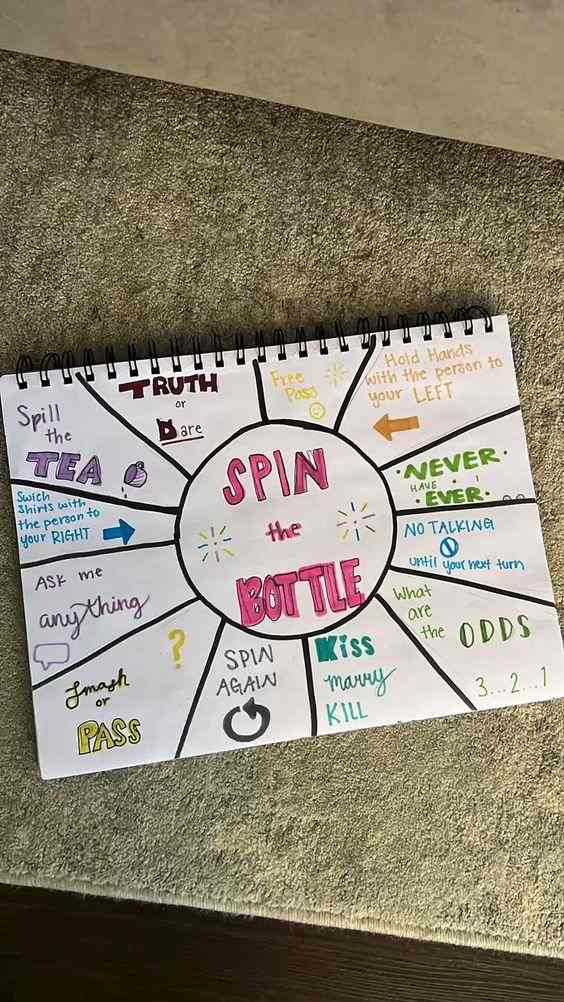 SPIN
the
BOTTLE
TRUTH
or
Dare
Free
Pass
Hold Hands
with the person to
your LEFT
NEVER
HAVE I
EVER
NO TALKING
until your next turn
What
are
the ODDS
3...2...1
Kiss
marry
KILL
SPIN
AGAIN
?
Smash
or
PASS
ASK me
anything
Swich
shirts with
the person to
your RIGHT
Spill
the
TEA